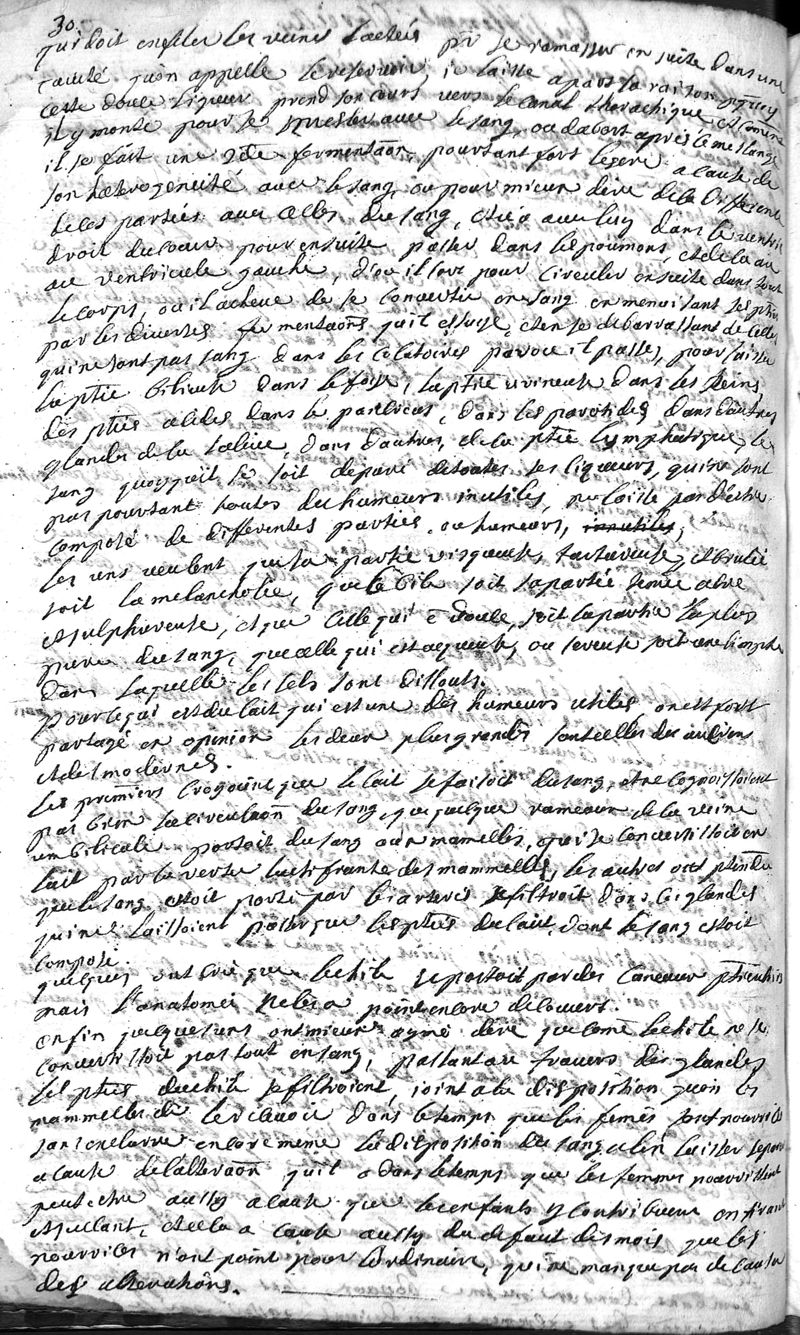 30.
qui doit enfiler les veines lactées pr se ramasser en suite dans une
cavité quon appelle le reservoir, ie laisse apart la raison pquoy
cette douce liqueur prend son cours vers le canal thorachique, et comme
il y monte pour se mesler avec le sang, ou dabort apres le meslange
il se fait une 2de fermentaõn, pourtant fort legere a cause de
son hæterogeneité avec le sang, ou pour mieux dire de la difference
de ses parties avec celles du sang, dans le ventri
droit du cœur pour ensuite passer dans les poumons, et de la au
au ventricule gauche, d'ou il sort pour circuler ensuite dans tout
le corps, ou il acheve de se convertir en sang en menuisant ses pties
par les diverses fermentaõns quil essuye, et en se debarrassant de celles
qui ne sont pas sang dans les colatoires par ou il passe, pour laisser
la ptie bilieuse dans le foye, la ptie urineuse dans les reins,
des pties acides dans le pancreas, dans les parotides dans dautres
glandes de la salive, dans dautres, de la ptie lymphatique, le
sang quoyquil se soit separé de toutes ses liqueurs, qui ne sont
pas pourtant toutes des humeurs inutiles, ne laisse pas d'estre
composé de differentes parties, ou humeurs, inutiles,
les uns veulent que la partie visqueuse, tartareuse, et brulée
soit la melancholie, que la bile soit la partie tenue acre
et sulphureuse, et que celle qui e douce, soit la partie la plus
pure du sang, que celle qui est aqueuse, ou sereuse soit une limphe
dans laquelle les sels sont dissouts.
pour ce qui est du lait qui est une des humeurs utiles on est fort
partagé en opinion les deux plus grandes sont celles des anciens
et des modernes.
les premiers croyoint que le lait se faisoit du sang, et ne cognoissoient
pas bien la circulaõn du sang, que quelque rameaux de la veine
umbilicale portoit du sang aux mamelles, qui se convertissoit en
lait par la vertu lactifiante des mammelles, les autres ont ptendu
que le sang estoit porté par les arteres se filtroit dans les glandes
qui ne laissoient passer que les pties du lait, dont le sang estoit
composé.
quelques ont crû que le chile se portoit par des canaux pticuliers
mais l'anatomie ne les a point encore decouvert.
enfin quelques uns ont mieux aymé dire que come le chile ne se
convertissoit pas tout en sang, passant au travers des glandes
les pties du chile se filtroient, joint a la disposition quon les
mammelles de le recevoir dans le temps que les femes sont nourrices
encore meme la disposition du sang a len laisser separer
a cause de lalteraõn quil a dans le temps que les femmes nourrissent
peut etre aussy a cause que les enfants y contribuent en tirant
et sucçant, et cela a cause aussy du defaut des mois que les
nourrices n'ont point pour l'ordinaire, qui ne manque pas de causer
des alterations.